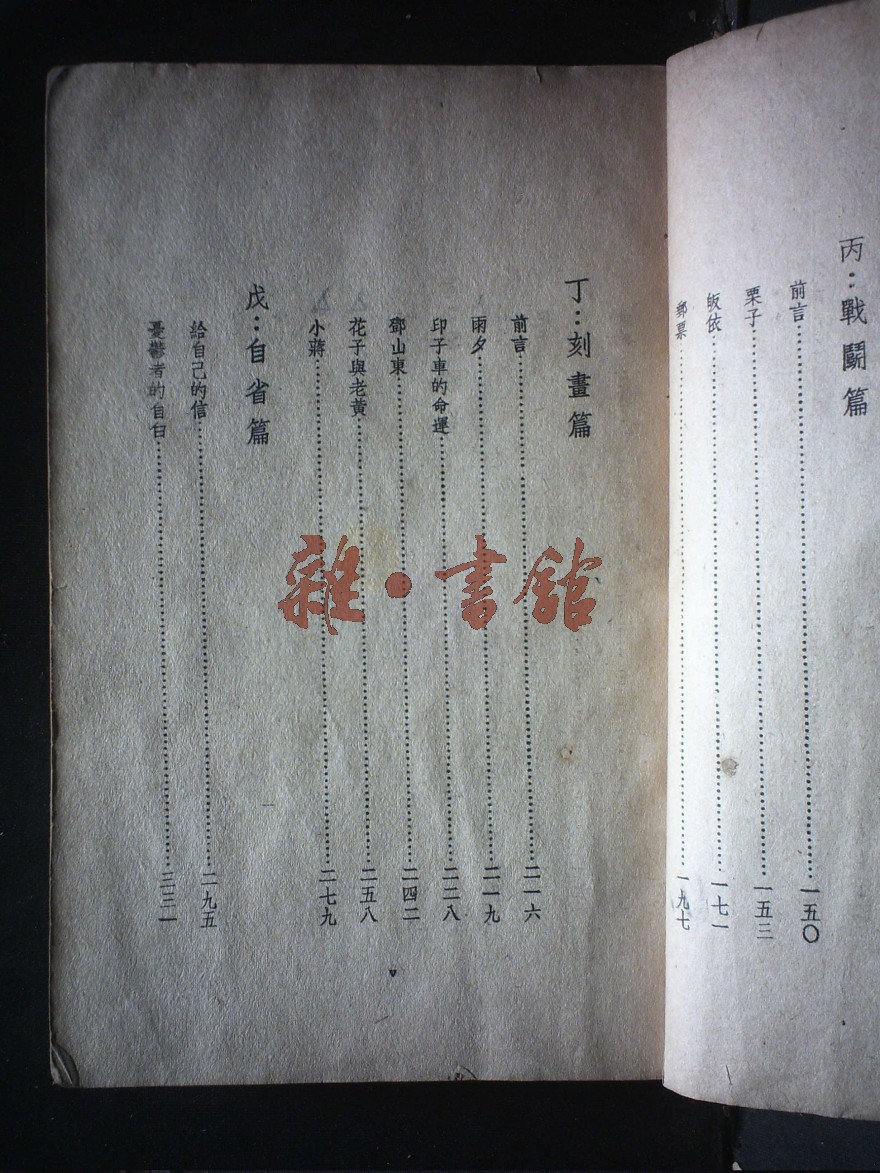 丙：戰鬪篇
前言……一五〇
栗子……一五三
皈依……一七一
郵票……一九七
丁：刻畫篇
前言……二一六
雨夕……二一九
印子車的命運……二二八
鄧山東……二四二
花子與老黃……二五八
小蔣……二七九
戊：自省篇
給自己的信……二九五
憂鬱者的自白……三三一
雜·書館